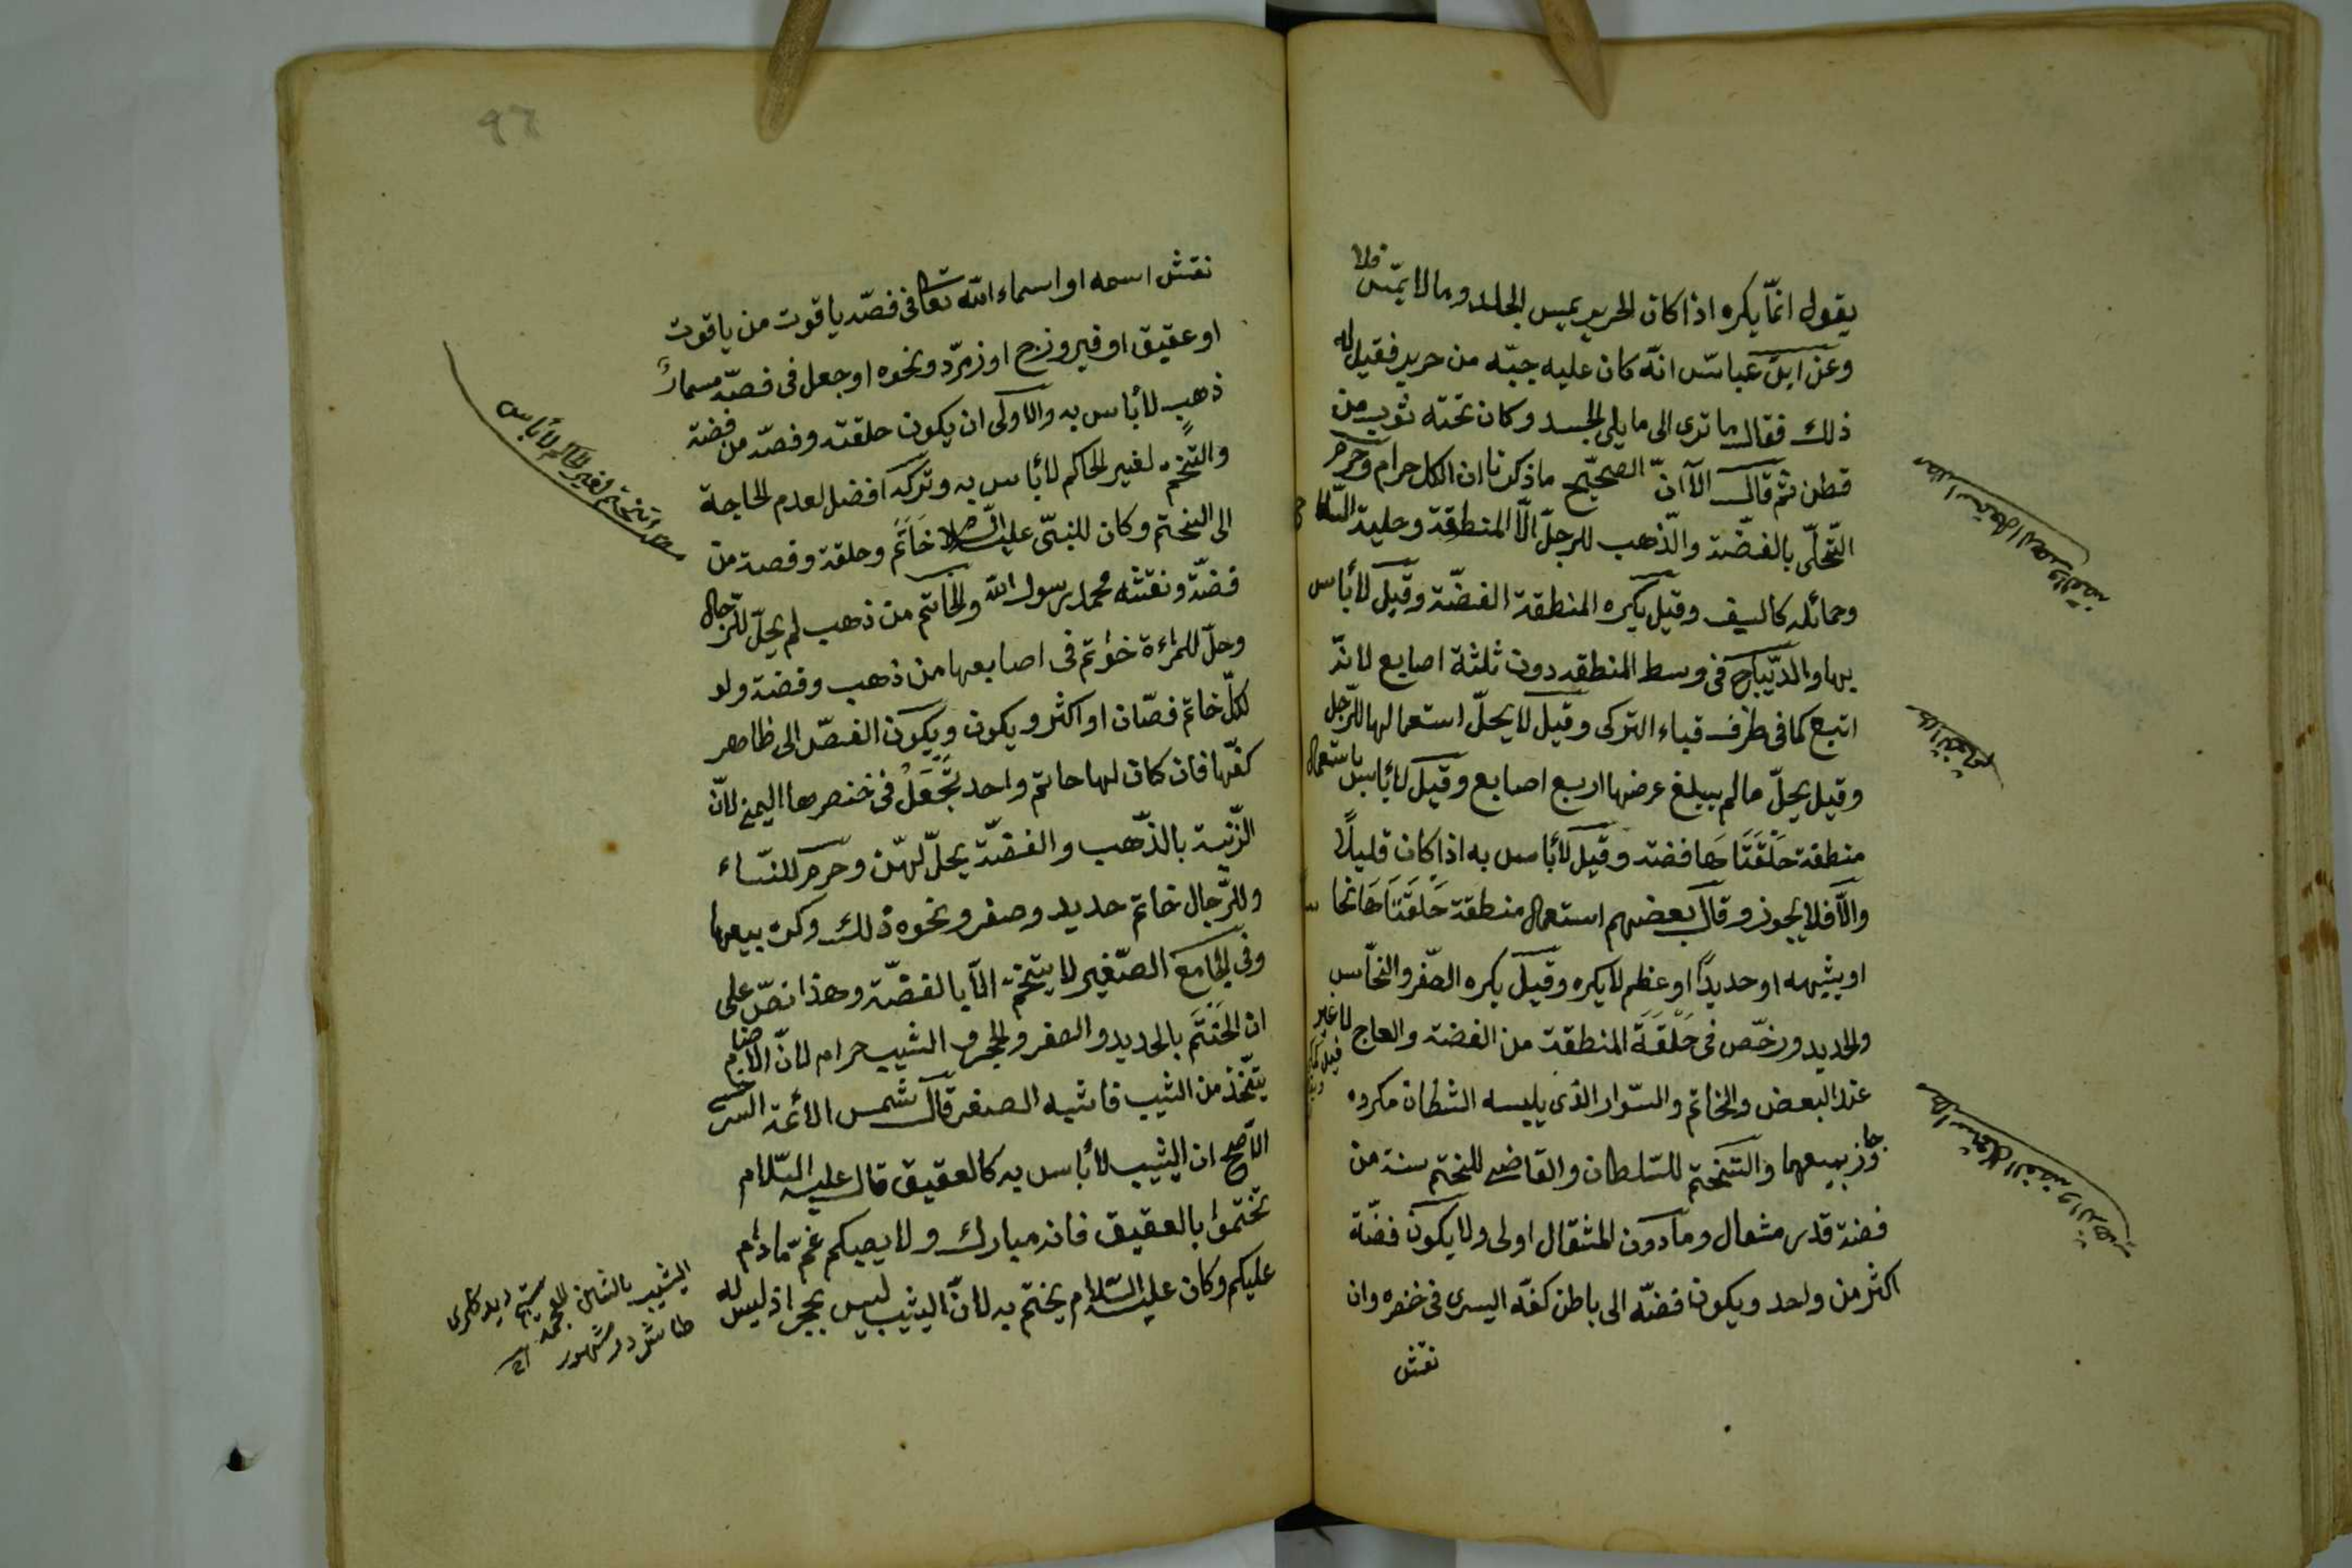 يقول انّما يكره اذا كان الحرير يمس الجلد وما لا يمسّ فلا
وعن ابن عباس انّه كان عليه جبّه من حرير فقيل له
ذلك فقال ما ترى الى ما يلى الجسد وكان تحته ثوب من
قطن ثم قال الا انّ الصحيح ما ذكرنا ان الكل حرام وحرم
التّحلّى بالفضّة والذّهب للرجل الّا المنطقة وحلية السّلاح
وحمائله كالسيف وقيل يكره المنطقة الفضّة وقيل لا بأس
بها والدّيباج فى وسط المنطقه دون ثلثة اصابع لانّه
اتبع كما فى طرف قباء التركى وقيل لا يحلّ استعمالها للرّجل
وقيل يحلّ مالم يبلغ عرضها اربع اصابع وقيل لا بأس باستعمال
منطقة حَلْقَتَاهَا فضه وقيل لا بأس به اذا كان قليلاً
والّا فلا يجوز وقال بعضهم استعمال منطقة حَلَقَتَاهَا نحاس
او شبهه او حديدًا او عظم لا يكره وقيل يكره الصّفر والنحّاس
والحديد ورخّص فى حَلْقَةَ المنطقة من الفضة والعاج لا غير
عند البعض والخاتم والسّوار الذى يلبسه الشطان مكروه
جاز بيعهما والتّختّم للسّلطان والقاضى للختم سنة من
فضة قدر مثقال وما دون المثقال اولى ولا يكون فضّة
اكثر من واحد ويكون فضّه الى باطن كفّه اليسرى فى خنصره وان
نقش
نقش اسمه او اسماء الله تعا فى فصّه ياقوت من ياقوت
او عقيق او فيروزج او زمرّد ونحوه او جعل فى فصّه مسمارُ
ذهبٍ لا بأس به والاولى ان يكون حلقته وفصّه من فضة
والتّختّم لغير الحاكم لا بأس به وتركه افضل لعدم الحاجة
الى التختم وكان للنبىّ عليه السّلام خَاتَم وحلقة وفصه من
فضّة ونقشه محمد رسول الله والخاتم من ذهب لم يحلّ للرّجال
وحلّ للمراءة خواتم فى اصابعها من ذهب وفضة ولو
لكلّ خاتم فصّان او اكثر ويكون ويكون الفصّ الى ظاهر
كفّها فان كان لها خاتم واحد تَجْعَلُ فى خنصرها اليمنى لانّ
الزّينة بالذّهب والفضّة يحلّ لهّن وحرم للنّساء
وللرّجال خاتم حديد وصفر ونحوه ذلك وكره بيعها
وفى الجامع الصّغير لا يتختّم الّا بالفضّة وهذا نصّ على
ان التختّم بالحديد والصفر والحجر والشيب حرام لانّ الاصنام
يتّخذ من الشيب فاشبه الصفر قال شمس الائمة السرخسى
الاصح ان اليشيب لا بأس به كالعقيق قال عليه السّلام
تختّموا بالعقيق فانه مبارك ولا يصيبكم غمّ مادام
عليكم وكان عليه السّلام يختّم به لانّ اليشيب ليس بحجر اذ ليس له
مطلب تختم لغير الحاكم لا بأس
اليشيب بالشين المعجمة
طاش در مشهور